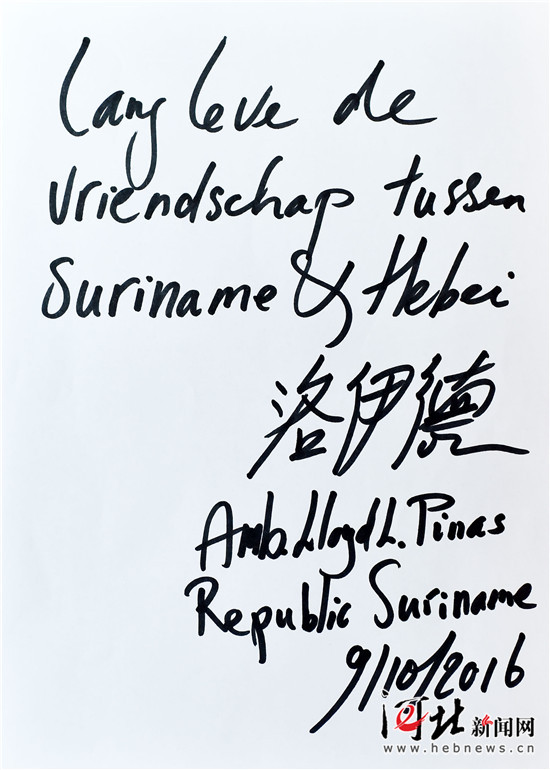 Lang leve de
vriendschap tussen
Suriname & Hebei
洛伊德
Amb. Lloyd L. Pinas
Republic Suriname
9/10/2016
河北新闻网
www.hebnews.cn